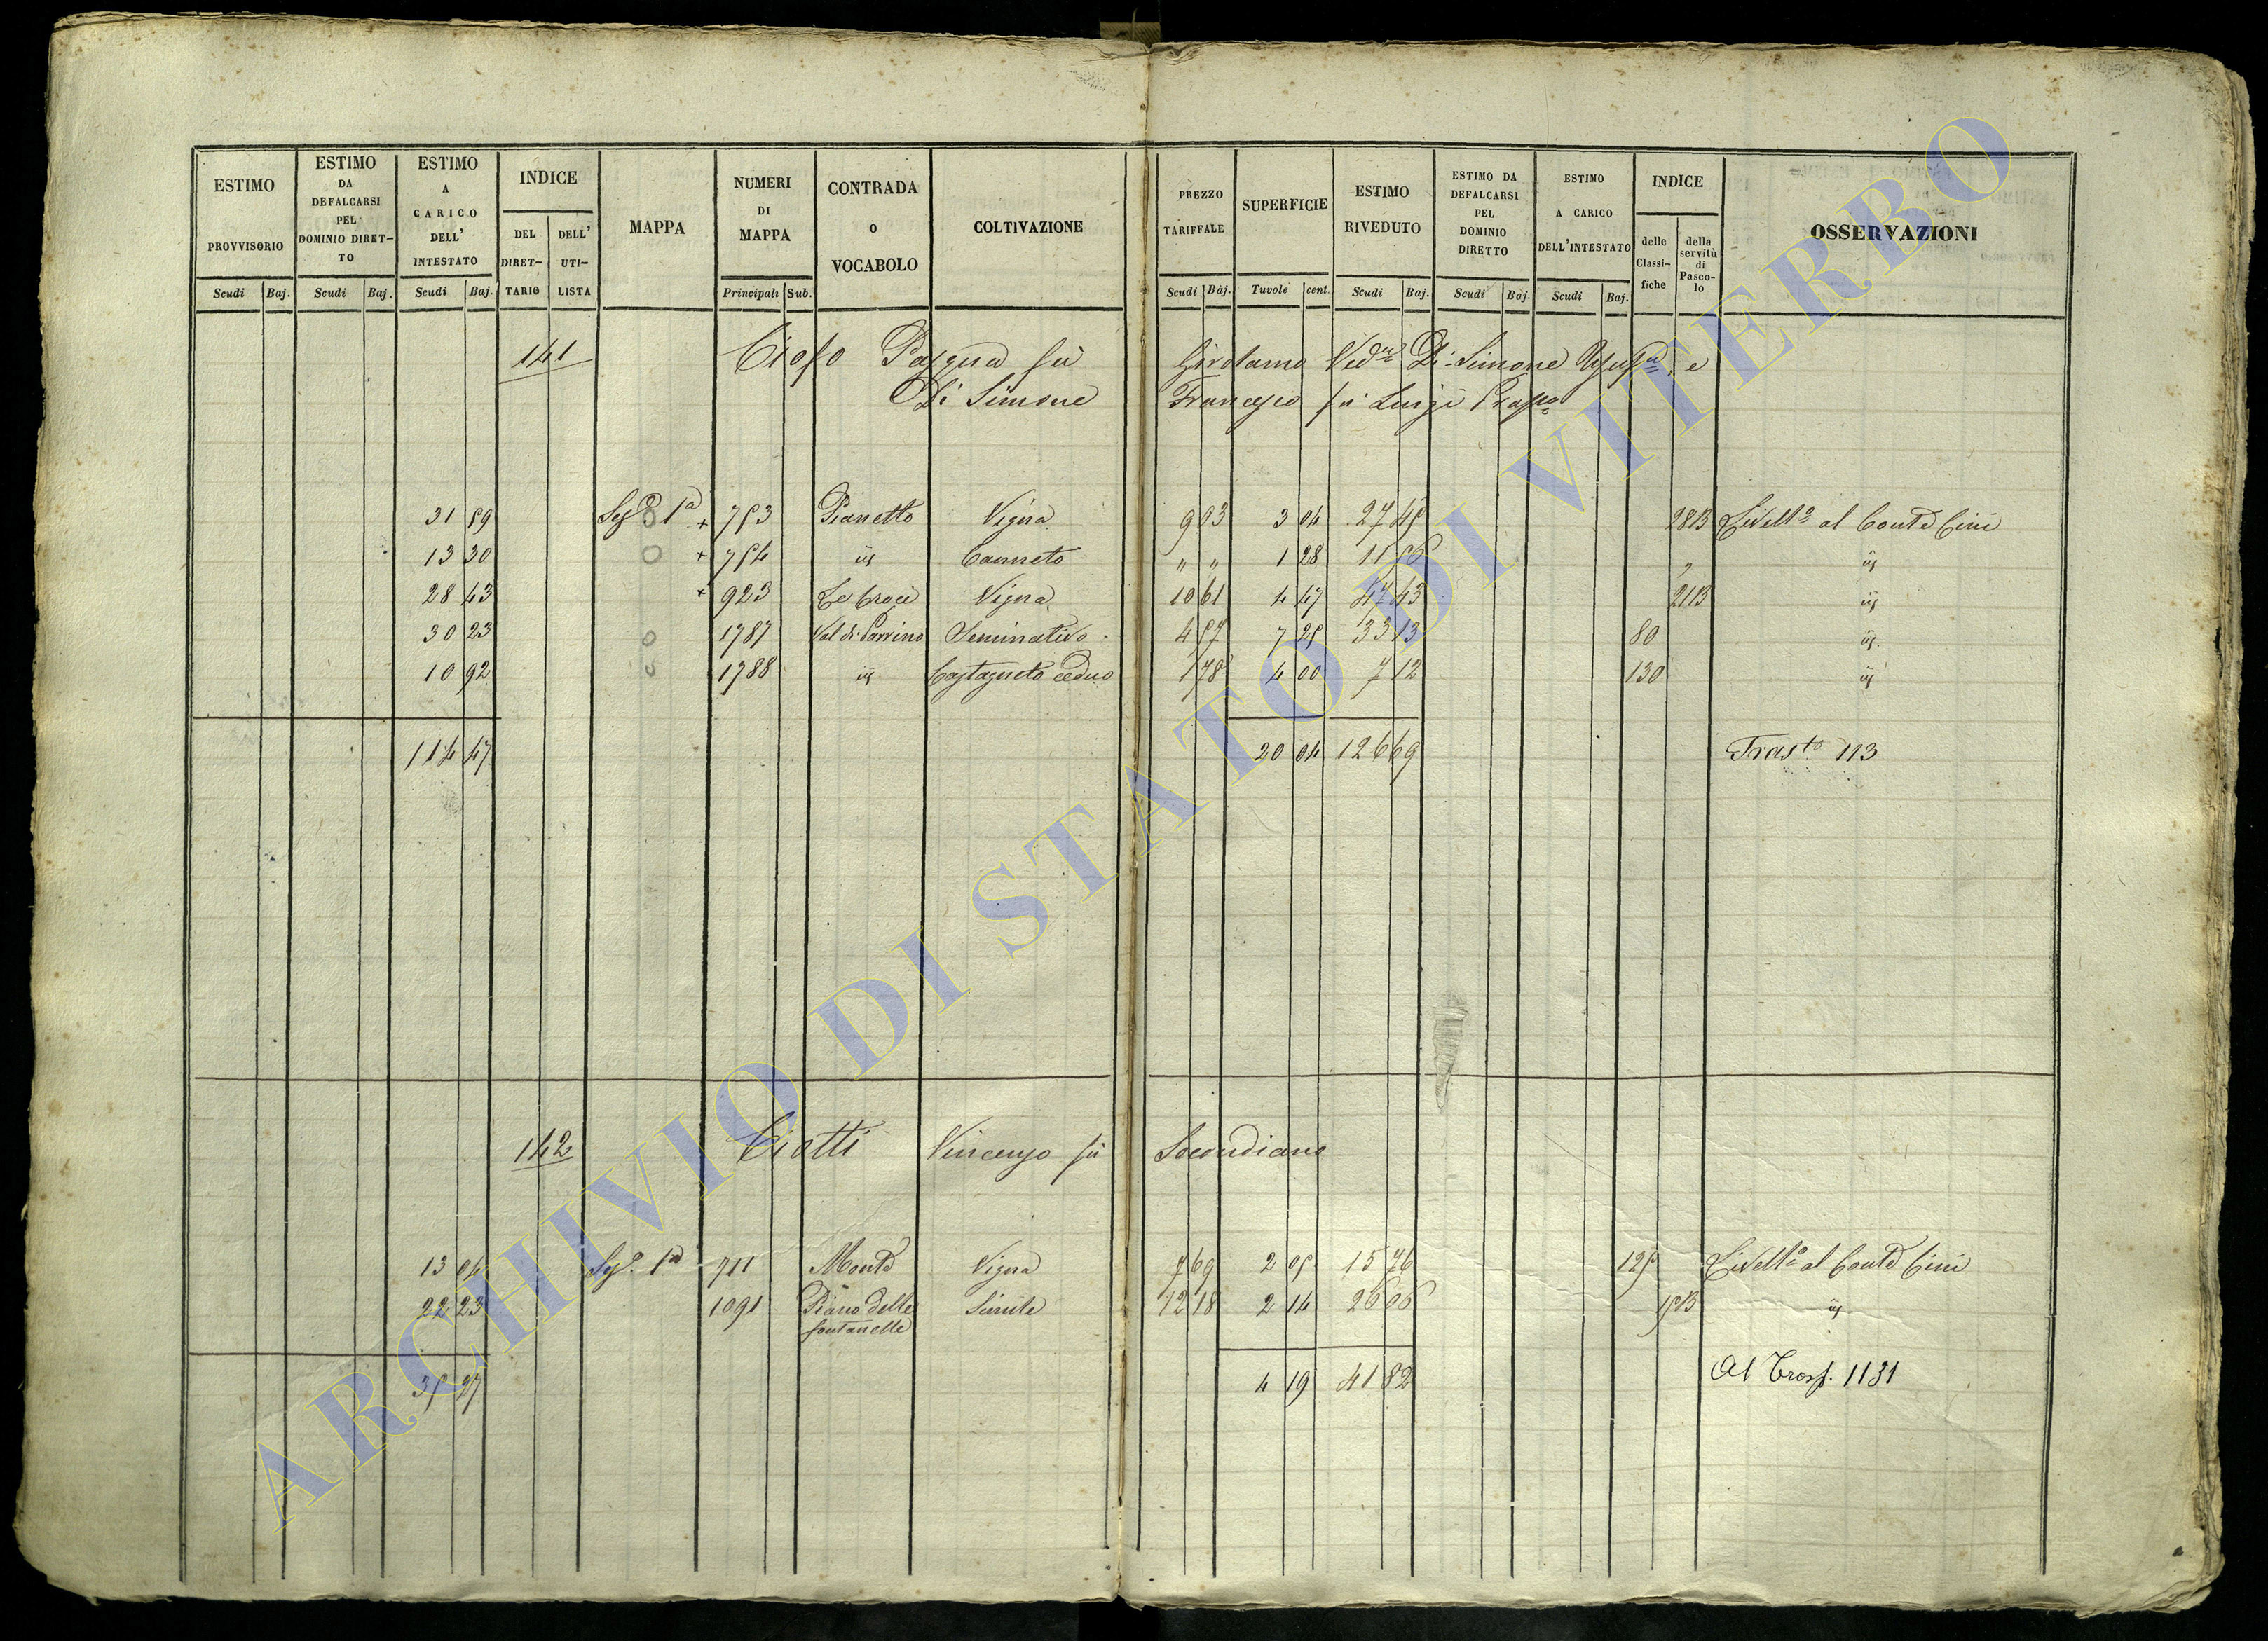 ESTIMO PROVVISORIO Scudi Baj.
ESTIMO DA DEFALCARSI PEL DOMINIO DIRET-TO Scudi Baj.
ESTIMO A CARICO DELL' INTESTATO Scudi Baj.
INDICE DEL DIRET-TARIO DELL' UTI-LISTA
MAPPA
NUMERI DI MAPPA Principali Sub.
CONTRADA o VOCABOLO
COLTIVAZIONE
PREZZO TARIFFALE Scudi Baj.
SUPERFICIE Tavole cent.
ESTIMO RIVEDUTO Scudi Baj.
ESTIMO DA DEFALCARSI PEL DOMINIO DIRETTO Scudi Baj.
ESTIMO A CARICO DELL'INTESTATO Scudi Baj.
INDICE delle Classi-fiche della servitù di Pasco-lo
OSSERVAZIONI
141 Ciofo Pasqua fù Girolamo Ved.a Di Simone e
Di Simone Francesco fù Luigi
31 59 Sez.e 1a + 753 Pianetto Vigna 9 03 3 04 27 45 28B Livell.o al Conte Cini
13 30 + 754 id Canneto " " 1 28 11 56 " id
28 43 + 923 Le Croci Vigna 10 61 4 47 47 43 21B id
30 23 1787 Val di Pavvino Seminativo 4 57 7 25 33 13 80 id
10 92 1788 id Castagneto ceduo 1 78 4 00 7 12 130 id
114 47 20 04 126 69 Trasto 113
142 Ciotti Vincenzo fù Secondiano
13 04 Sez.e 1a 711 Monte Vigna 7 69 2 05 15 76 125 Livell.o al Conte Cini
22 23 1091 Piano delle Simile 12 18 2 14 26 06 15B id
fontanelle
35 27 4 19 41 82 Al Trasp. 1131
ARCHIVIO DI STATO DI VITERBO